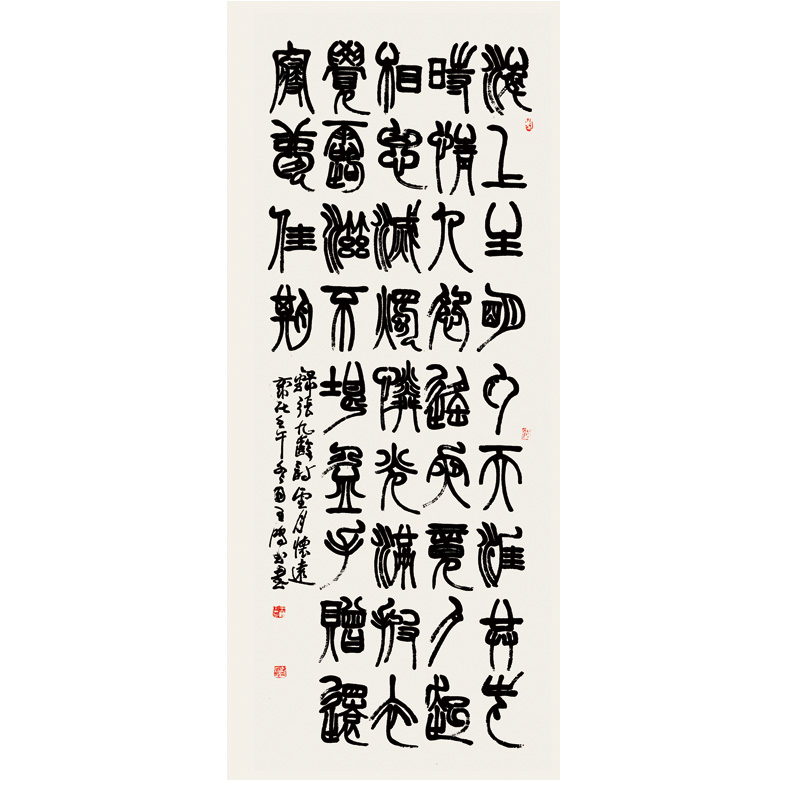 海上生明月天涯共此
時情人怨遙夜竟夕起
相思滅燭憐光滿披衣
覺露滋不堪盈手贈還
寢夢佳期
錄張九齡詩望月懷遠
歲在壬午冬